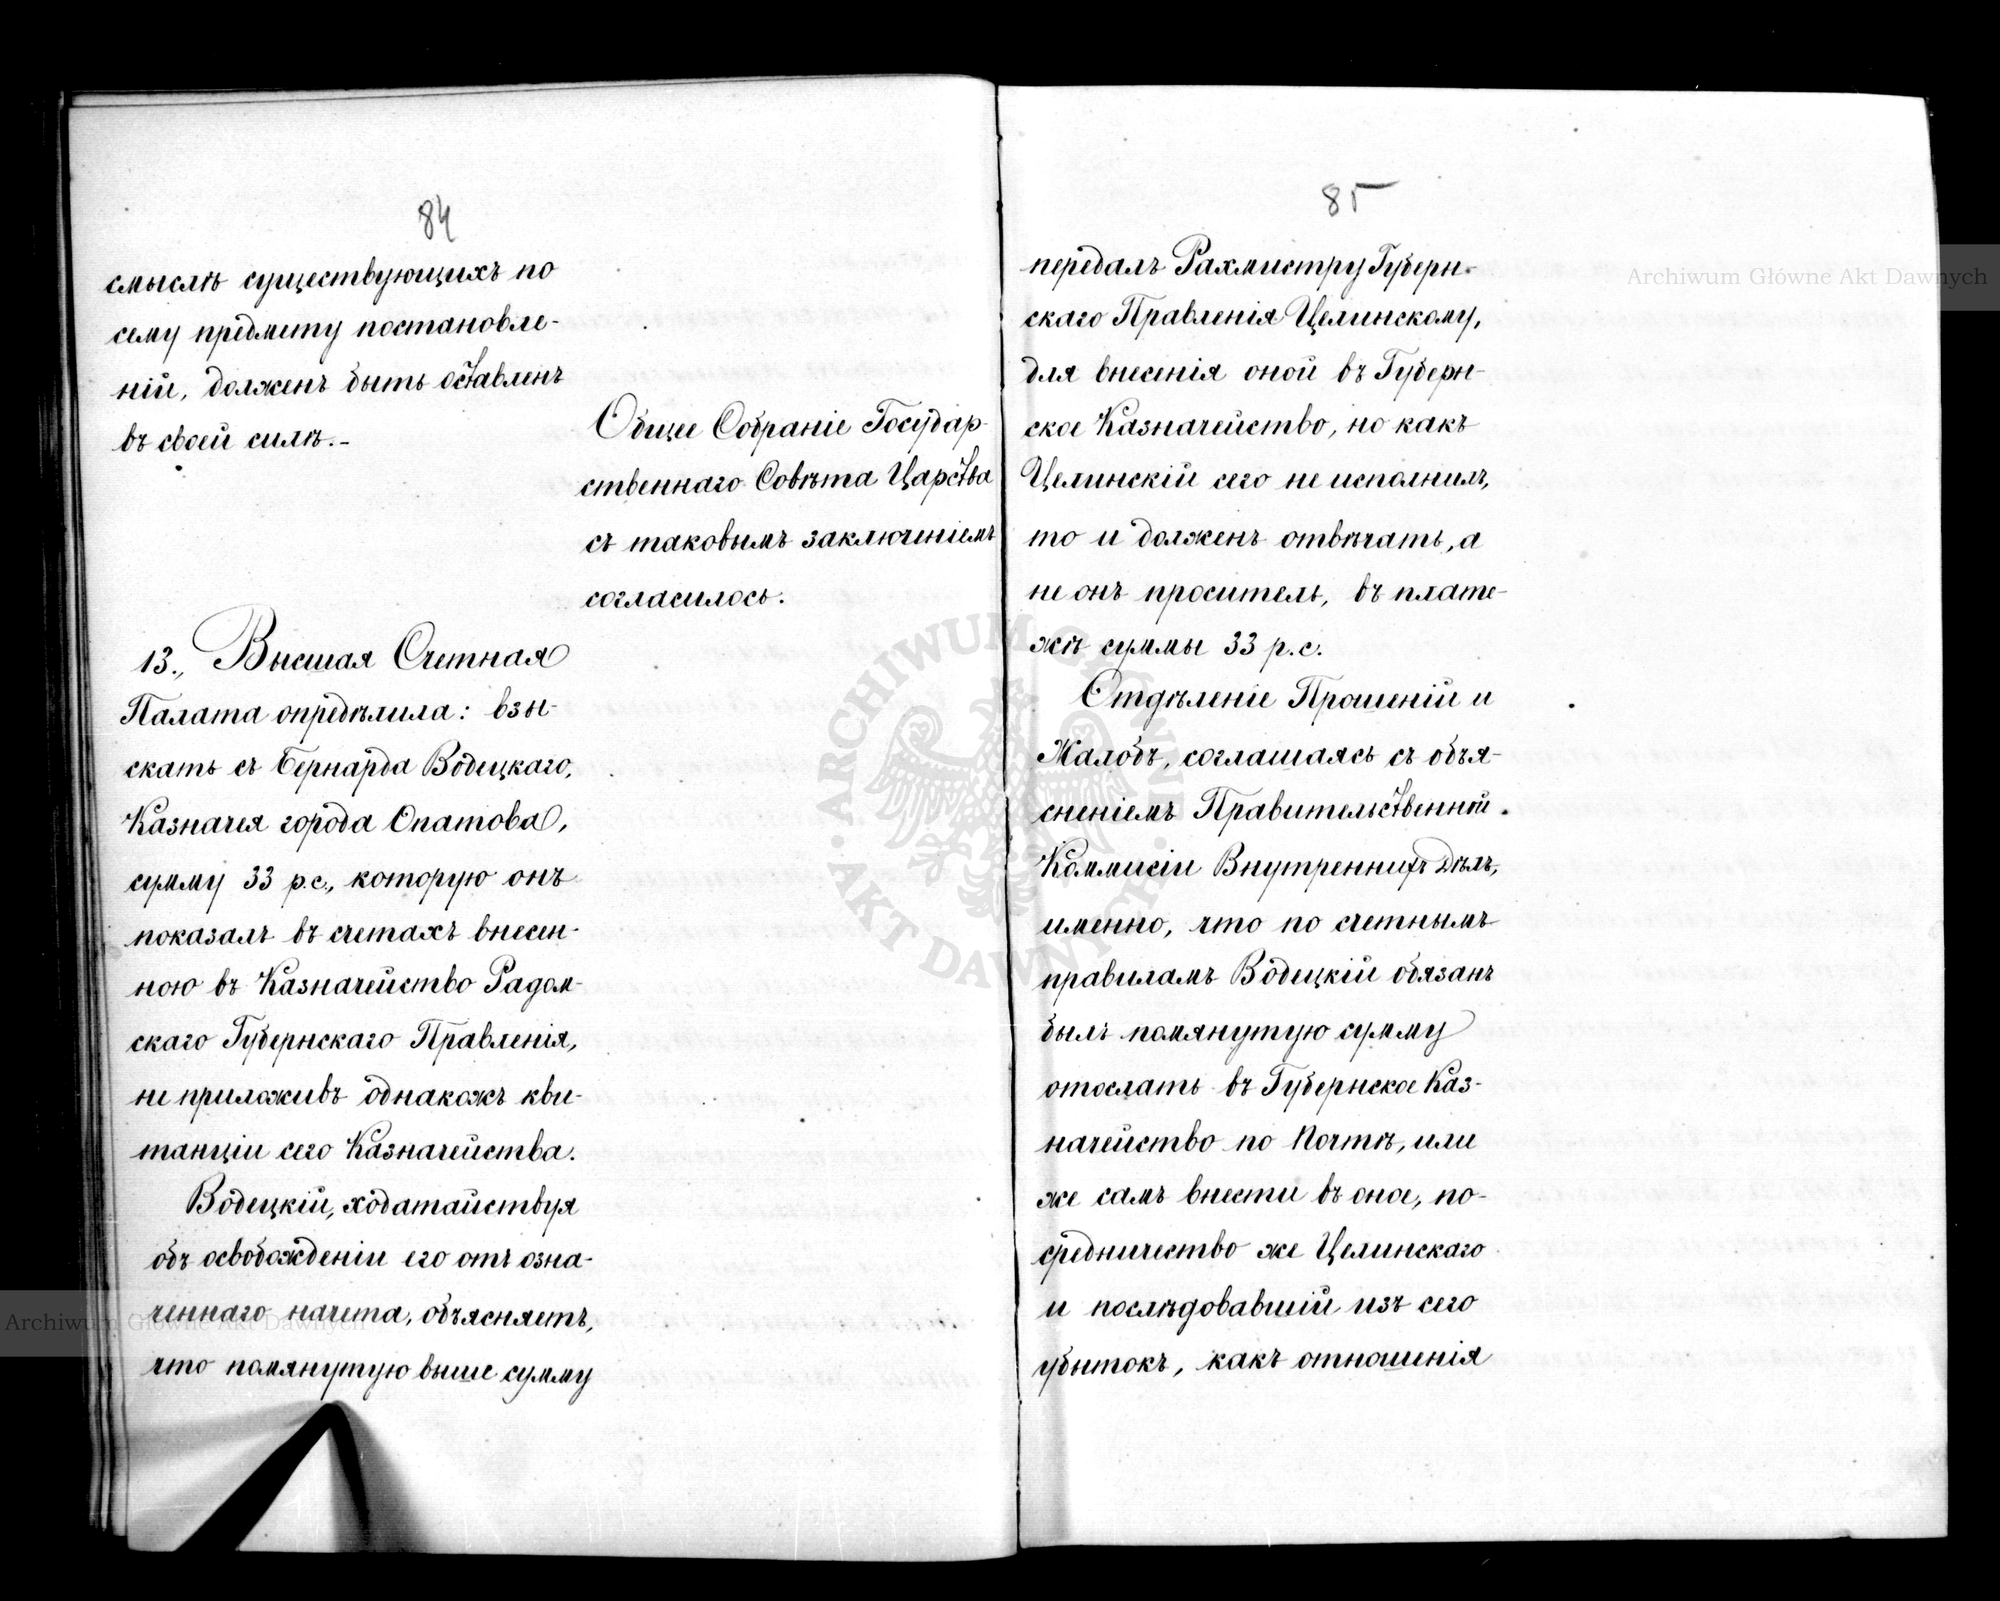 84
смыслѣ существующихъ по
сему предмету постановле-
ній, долженъ быть оставленъ
въ своей силѣ.-
Общее Собраніе Государ-
ственнаго Совѣта Царства
съ таковымъ заключеніемъ
согласилось.
13., Высшая Счетная
Палата опредѣлила: взы-
скать съ Бернарда Водецкаго,
Казначея города Опатова,
сумму 33 р.с., которую онъ
показалъ въ счетахъ внесен-
ною въ Казначейство Радом-
скаго Губернскаго Правленія,
не приложивъ однакожъ кви-
танціи сего Казначейства.
Водецкій, ходатайствуя
объ освобожденіи его отъ озна-
ченнаго начета, объясняетъ,
что помянутую выше сумму
85
передалъ Рахмистру Губерн-
скаго Правленія Целинскому,
для внесенія оной въ Губерн-
ское Казначейство, но какъ
Целинскій сего не исполнилъ,
то и долженъ отвѣчать, а
не онъ проситель, въ плате-
жѣ суммы 33 р.с.
Отдѣленіе Прошеній и
Жалобъ, соглашаясь съ объя-
сненіемъ Правительственной
Коммисіи Внутреннихъ Дѣлъ,
именно, что по счетнымъ
правиламъ Водецкій обязанъ
былъ помянутую сумму
отослать въ Губернское Каз-
начейство по Почтѣ, или
же самъ внести въ оное, по-
средничество же Целинскаго
и послѣдовавшій изъ сего
убытокъ, какъ отношенія
Archiwum Główne Akt Dawnych
Archiwum Główne Akt Dawnych
ARCHIWUM GŁÓWNE AKT DAWNYCH